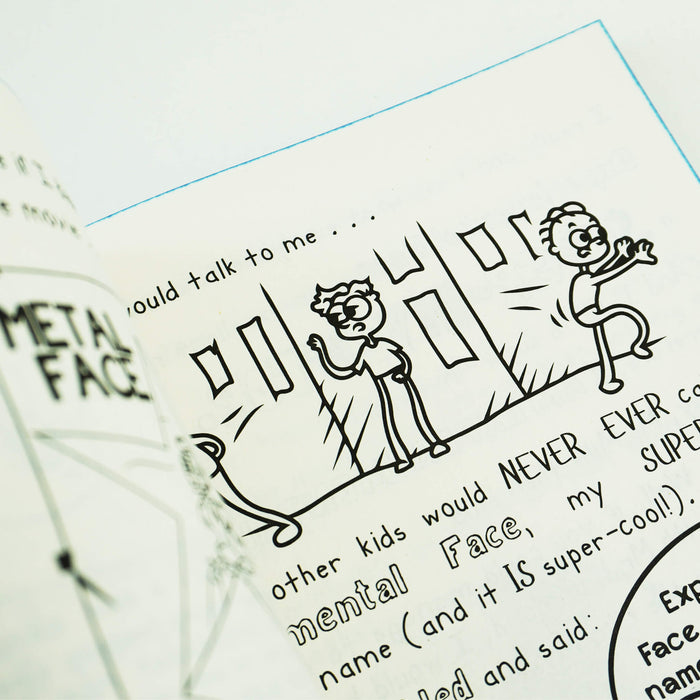 METAL
FACE
would talk to me . . .
other kids would NEVER EVER
mental Face, my SUPER
name (and it IS super-cool!).
and said:
Face
name